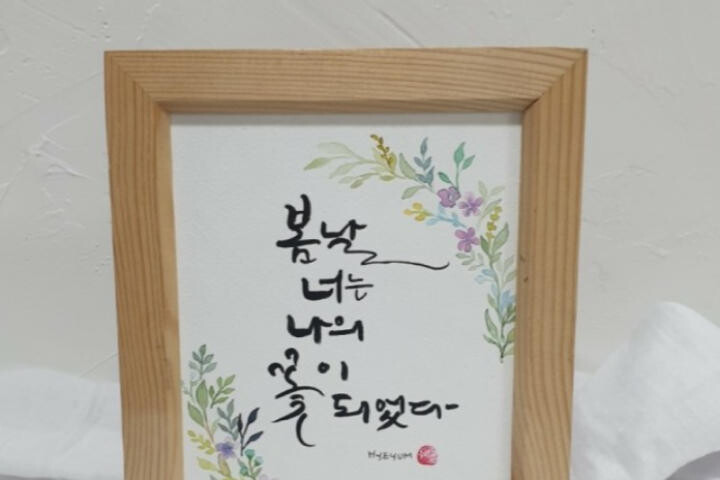 봄날
너는
나의
꽃이
되었다
HYEYUM